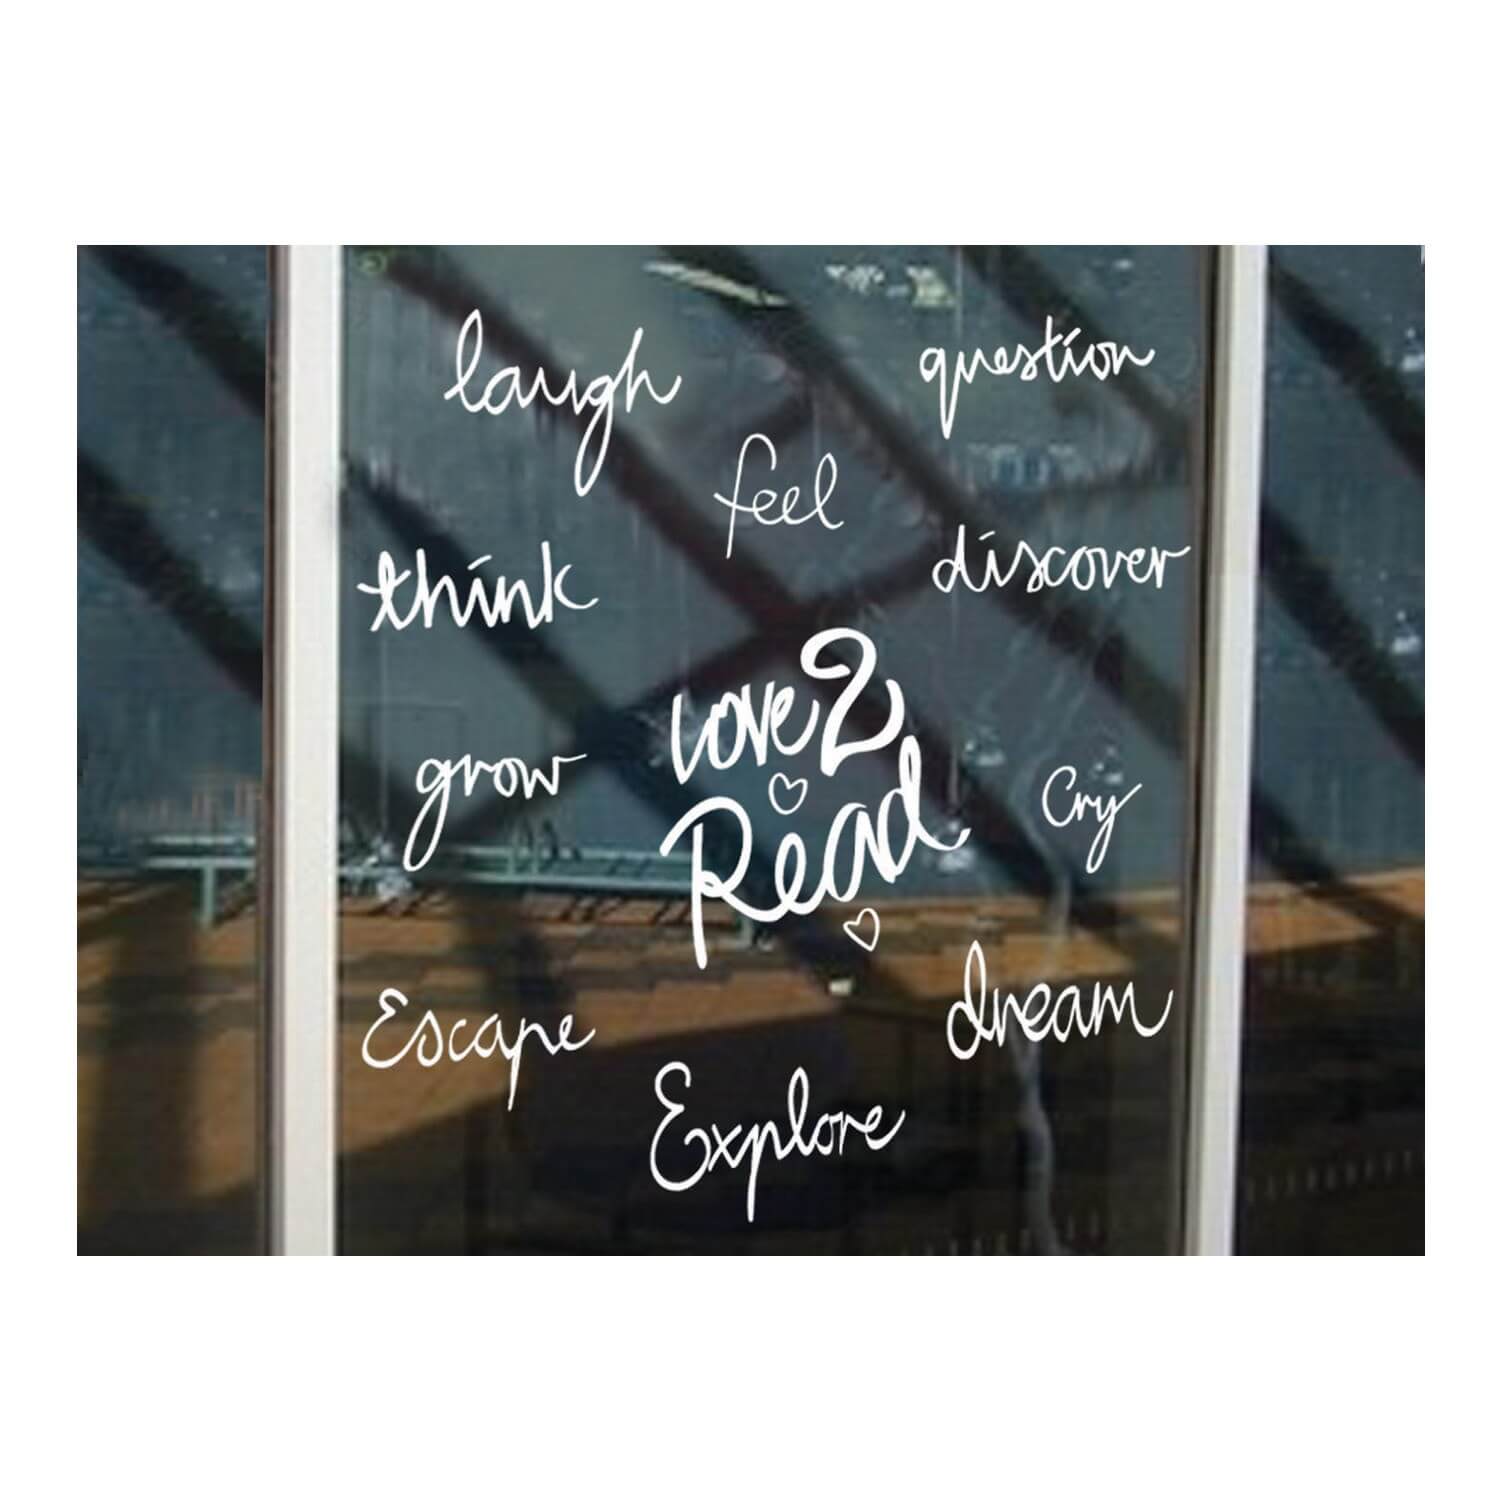 laugh
question
feel
think
discover
Love 2
Read
grow
Cry
Escape
dream
Explore